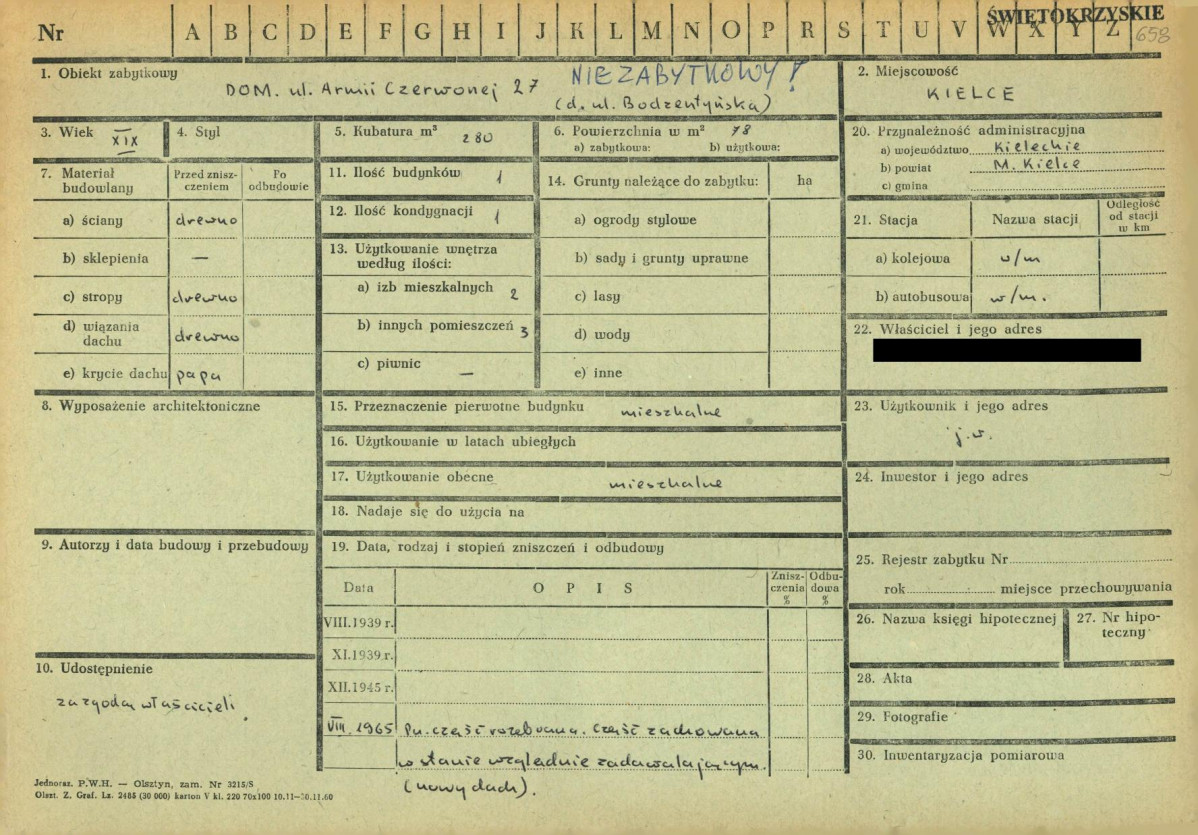 ŚWIĘTOKRZYSKIE
Nr A B C D E F G H I J K L M N O P R S T U V W X Y Z 658
1. Obiekt zabytkowy
DOM. ul. Armii Czerwonej 27
NIEZABYTKOWY!
(d. ul. Bodzentyńska)
2. Miejscowość
KIELCE
3. Wiek XIX
4. Styl
5. Kubatura m³ 280
6. Powierzchnia w m² 78
a) zabytkowa: b) użytkowa:
20. Przynależność administracyjna
a) województwo Kieleckie
b) powiat M. Kielce
c) gmina
7. Materiał budowlany
Przed zniszczeniem
Po odbudowie
a) ściany drewno
b) sklepienia —
c) stropy drewno
d) wiązania dachu drewno
e) krycie dachu papa
11. Ilość budynków 1
12. Ilość kondygnacji 1
13. Użytkowanie wnętrza
według ilości:
a) izb mieszkalnych 2
b) innych pomieszczeń 3
c) piwnic —
14. Grunty należące do zabytku: ha
a) ogrody stylowe
b) sady i grunty uprawne
c) lasy
d) wody
e) inne
21. Stacja
Nazwa stacji
Odległość
od stacji
w km
a) kolejowa w/m
b) autobusowa w/m.
22. Właściciel i jego adres
8. Wyposażenie architektoniczne
15. Przeznaczenie pierwotne budynku mieszkalne
16. Użytkowanie w latach ubiegłych
17. Użytkowanie obecne mieszkalne
18. Nadaje się do użycia na
23. Użytkownik i jego adres
j.w.
24. Inwestor i jego adres
9. Autorzy i data budowy i przebudowy
19. Data, rodzaj i stopień zniszczeń i odbudowy
Data
OPIS
Zniszczenia %
Odbudowa %
VIII.1939 r.
XI.1939 r.
XII.1945 r.
VIII. 1965 Pn. część rozebrana. Część zachowana
w stanie względnie zadawalającym.
(nowy dach).
25. Rejestr zabytku Nr
rok miejsce przechowywania
26. Nazwa księgi hipotecznej
27. Nr hipoteczny
28. Akta
29. Fotografie
30. Inwentaryzacja pomiarowa
10. Udostępnienie
za zgodą właścicieli.
Jednoraz. P.W.H. — Olsztyn, zam. Nr 3215/S
Olszt. Z. Graf. Lz. 2485 (30 000) karton V kl. 220 70x100 10.11—30.11.60